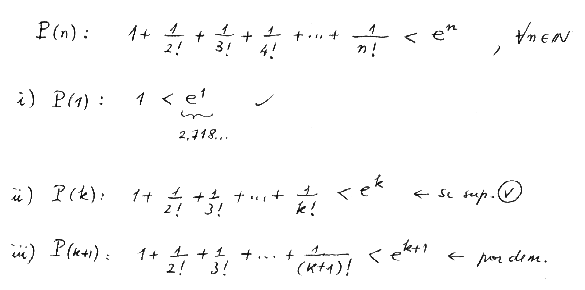 P(n): 1 + 1/2! + 1/3! + 1/4! + ... + 1/n! < e^n , ∀n∈ℕ
i) P(1): 1 < e^1 ✓
2,718...
ii) P(k): 1 + 1/2! + 1/3! + ... + 1/k! < e^k ← se sup. Ⓥ
iii) P(k+1): 1 + 1/2! + 1/3! + ... + 1/(k+1)! < e^{k+1} ← por dem.